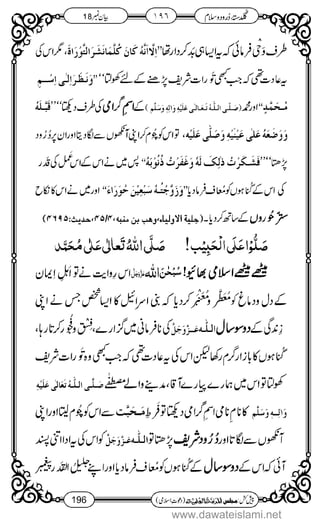 گلدستۂ درود و سلام ۱۹۶ بیان نمبر 18
طرف وَحْی فرمائی کہ یہ ایسا ہی بدکردار تھا اِلَّا اَنَّهٗ کَانَ کُلَّمَا نَشَرَ التَّوْرَاةَ، مگر اس کی
یہ عادت تھی کہ جب بھی تورات شریف پڑھنے کے لئے کھولتا ’’وَنَظَرَ اِلٰی اِسْمِ
مُحَمَّدٍ‘‘ اور محمد (صَلَّی اللہُ تَعَالٰی عَلَیْهِ وَاٰلِهٖ وَسَلَّم) کے اسمِ گرامی کی طرف دیکھتا، ’’قَبَّلَهٗ
وَوَضَعَهٗ عَلٰی عَیْنَیْهِ وَصَلّٰی عَلَیْهِ، تو اس کو چُوم کر اپنی آنکھوں سے لگاتا اور ان پر دُرُود
پڑھتا‘‘ ’’فَشَکَرْتُ ذٰلِکَ لَهٗ وَغَفَرْتُ ذُنُوْبَهٗ، پس میں نے اس کے اس عمل کی قدر
کی اور اُس کے گناہوں کو معاف فرما دیا وَزَوَّجْتُهٗ سَبْعِیْنَ حَوْرَاءَ‘‘ اور میں نے اس کا نکاح
ستّر حُوروں کے ساتھ کر دیا۔ (حلیة الاولیاء،وهب بن منبه،۴/۴۵،حدیث:۴۶۹۵)
صَلُّوْا عَلَی الْحَبِیْب! صَلَّی اللہُ تَعَالٰی عَلٰی مُحَمَّد
میٹھے میٹھے اسلامی بھائیو! سُبْحٰنَ اللہ عَزَّوَجَلَّ اس روایت نے تو اہلِ ایمان
کے دل و دماغ کو مُعَطَّر و مُعَنْبَر کر دیا کہ بنی اسرائیل کا ایسا شخص جس نے اپنی
زندگی کے دو سو سال اللہ عَزَّوَجَلَّ کی نافرمانی میں گزارے، فِسْق و فُجُور کرتا رہا،
گناہوں کا بازار گرم رکھا لیکن اس کی یہ عادت تھی کہ جب بھی وہ تورات شریف
کھولتا تو اس میں ہمارے پیارے آقا، مدینے والے مصطفےٰ صَلَّی اللہُ تَعَالٰی عَلَیْهِ
وَاٰلِهٖ وَسَلَّم کا نام نامی اسم گرامی دیکھتا تو فَرطِ مَحَبَّت سے اس کو چُوم لیتا اور اپنی
آنکھوں سے لگاتا اور دُرُود شریف پڑھتا تو اللہ عَزَّوَجَلَّ کو اس کی یہ ادا اتنی پسند
آئی کہ اُس کے دو سو سال کے گناہوں کو معاف فرما دیا اور اپنے جلیلُ القدر پیغمبر
پیش کش: مجلس المدینۃ العلمیۃ (دعوتِ اسلامی) 196
www.dawateislami.net